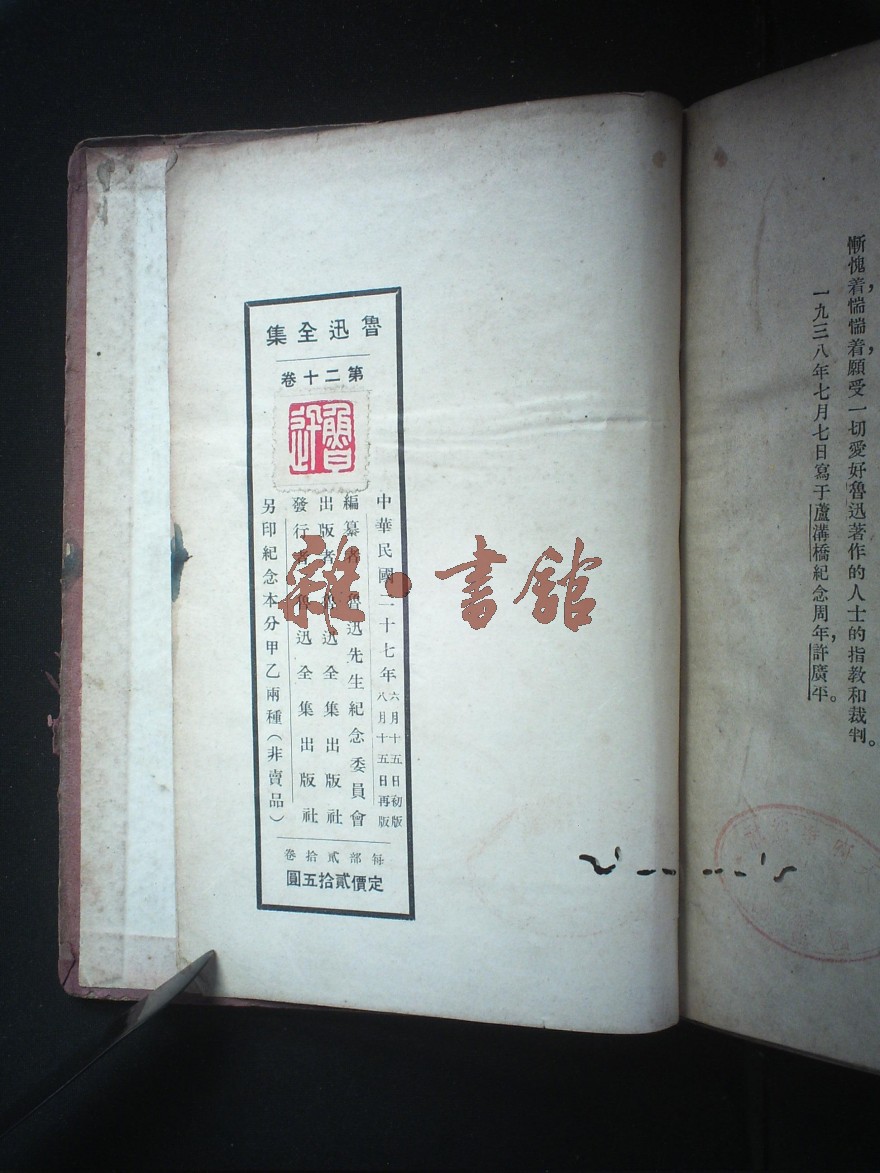 慚愧着，惴惴着，願受一切愛好魯迅著作的人士的指教和裁判。
一九三八年七月七日寫于蘆溝橋紀念周年，許廣平。
魯迅全集
第二十卷
魯迅
中華民國二十七年
六月十五日初版
八月十五日再版
編纂者 魯迅先生紀念委員會
出版者 魯迅全集出版社
發行者 魯迅全集出版社
另印紀念本分甲乙兩種（非賣品）
每部貳拾卷
定價貳拾五圓
雜·書館